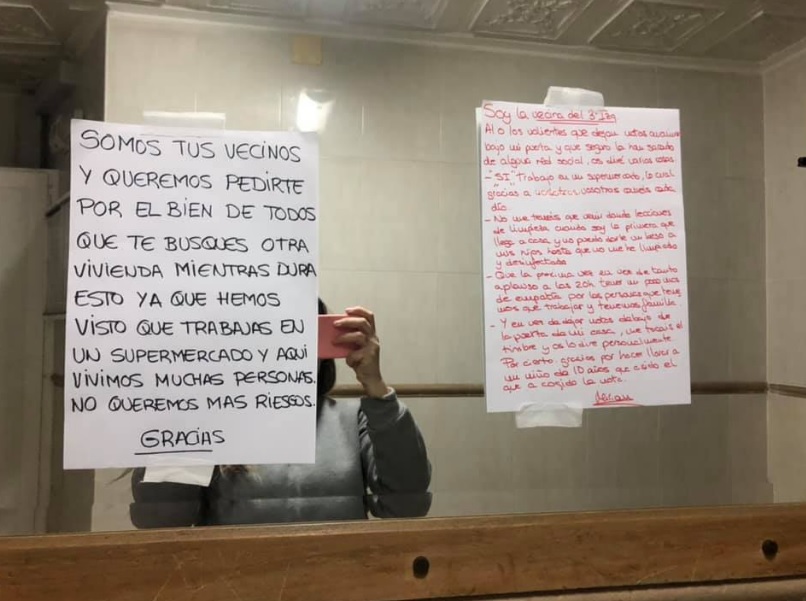 SOMOS TUS VECINOS
Y QUEREMOS PEDIRTE
POR EL BIEN DE TODOS
QUE TE BUSQUES OTRA
VIVIENDA MIENTRAS DURA
ESTO YA QUE HEMOS
VISTO QUE TRABAJAS EN
UN SUPERMERCADO Y AQUI
VIVIMOS MUCHAS PERSONAS.
NO QUEREMOS MAS RIESGOS.
GRACIAS
Soy la vecina del 3º Izq
Al o los valientes que dejan notas
bajo mi puerta y que seguro la han sacado
de alguna red social, os diré varias cosas.
- "SI" Trabajo en un supermercado, lo cual
gracias a vosotros coméis cada
día.
- No me tenéis que venir dando lecciones
de limpieza cuando soy la primera que
llega a casa y no puedo darle un beso a
mis hijos hasta que no me he limpiado
y desinfectado
- Que la próxima vez en vez de tanto
aplauso a las 20h tener un poco mas
de empatía por las personas que tene
mos que trabajar y tenemos familia
- Y en vez de dejar notas debajo de
la puerta de mi casa, me tocais el
timbre y os lo dire personalmente
Por cierto, gracias por hacer llorar a
un niño de 10 años que ha sido el
que a cogido la nota.